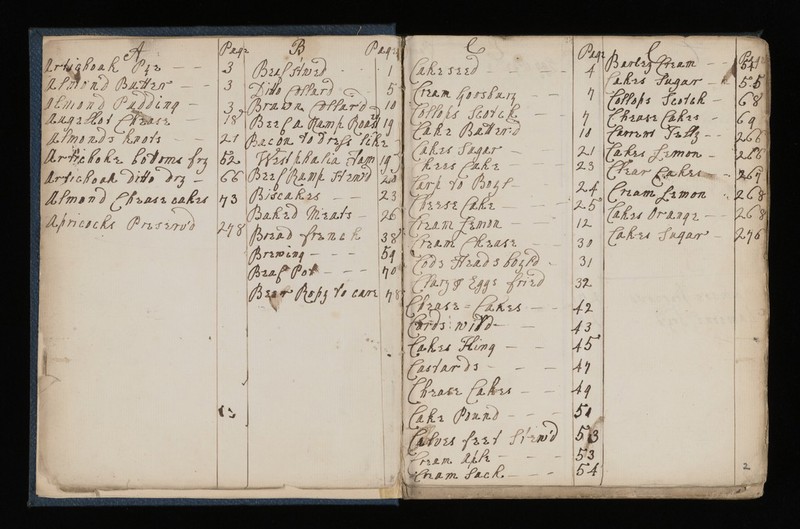 A Page
Artichoak Pye - - 3
Almond Butter - - 3
Almond Pudding - 3
Angellot Cheese - 18
Almonds knots - - 21
Artichoke bottoms fry 52
Artichoak ditto dry - 66
Almond Cheese cakes 73
Apricocks Preserv'd 278
B Page
Beef Stwed - - 1
Ditto Collard - - 5
Brawn Collar'd 10
Beef a Rump Roast 19
Bacon to dress like
Westphalia Ham 19
Beef Rump Stew'd 20
Biscakes - 23
Baked Meats - 26
Bread french 38
Brewing - - - 54
Beaf Pot - - - 70
Beer Ropy to cure 78
C Page
Cake seed - - - 4
Cream Goosbury - 7
Collops Scotch - 7
Cake Butterd 10
Cakes Sugar - - 21
Chees Cake - - 23
Carp to Boyl - - 24
Cheese Cake - - - 25
Cream Lemon - 12
Cream Cheese - - 30
Cods Heads boyld - 31
Clary & Eggs fried 32
Cheese = Cakes - - - 42
Cords: wild - - 43
Cakes Thing - - 45
Custards - - - 47
Cheese Cakes - - 49
Cake Pound - - - 51
Calves feet Stew'd 53
Cream Ale - - - 53
Cream Sack - - - 54
C
Barley Cream - -
Cakes Sugar - 55
Collops Scotch - 68
Cheese Cakes - 69
Currant Jelly - - 266
Cakes Lemon - 266
Clear Cakes - 269
Cream Lemon - 268
Cakes Orange - - 268
Cakes Sugar - 276
2